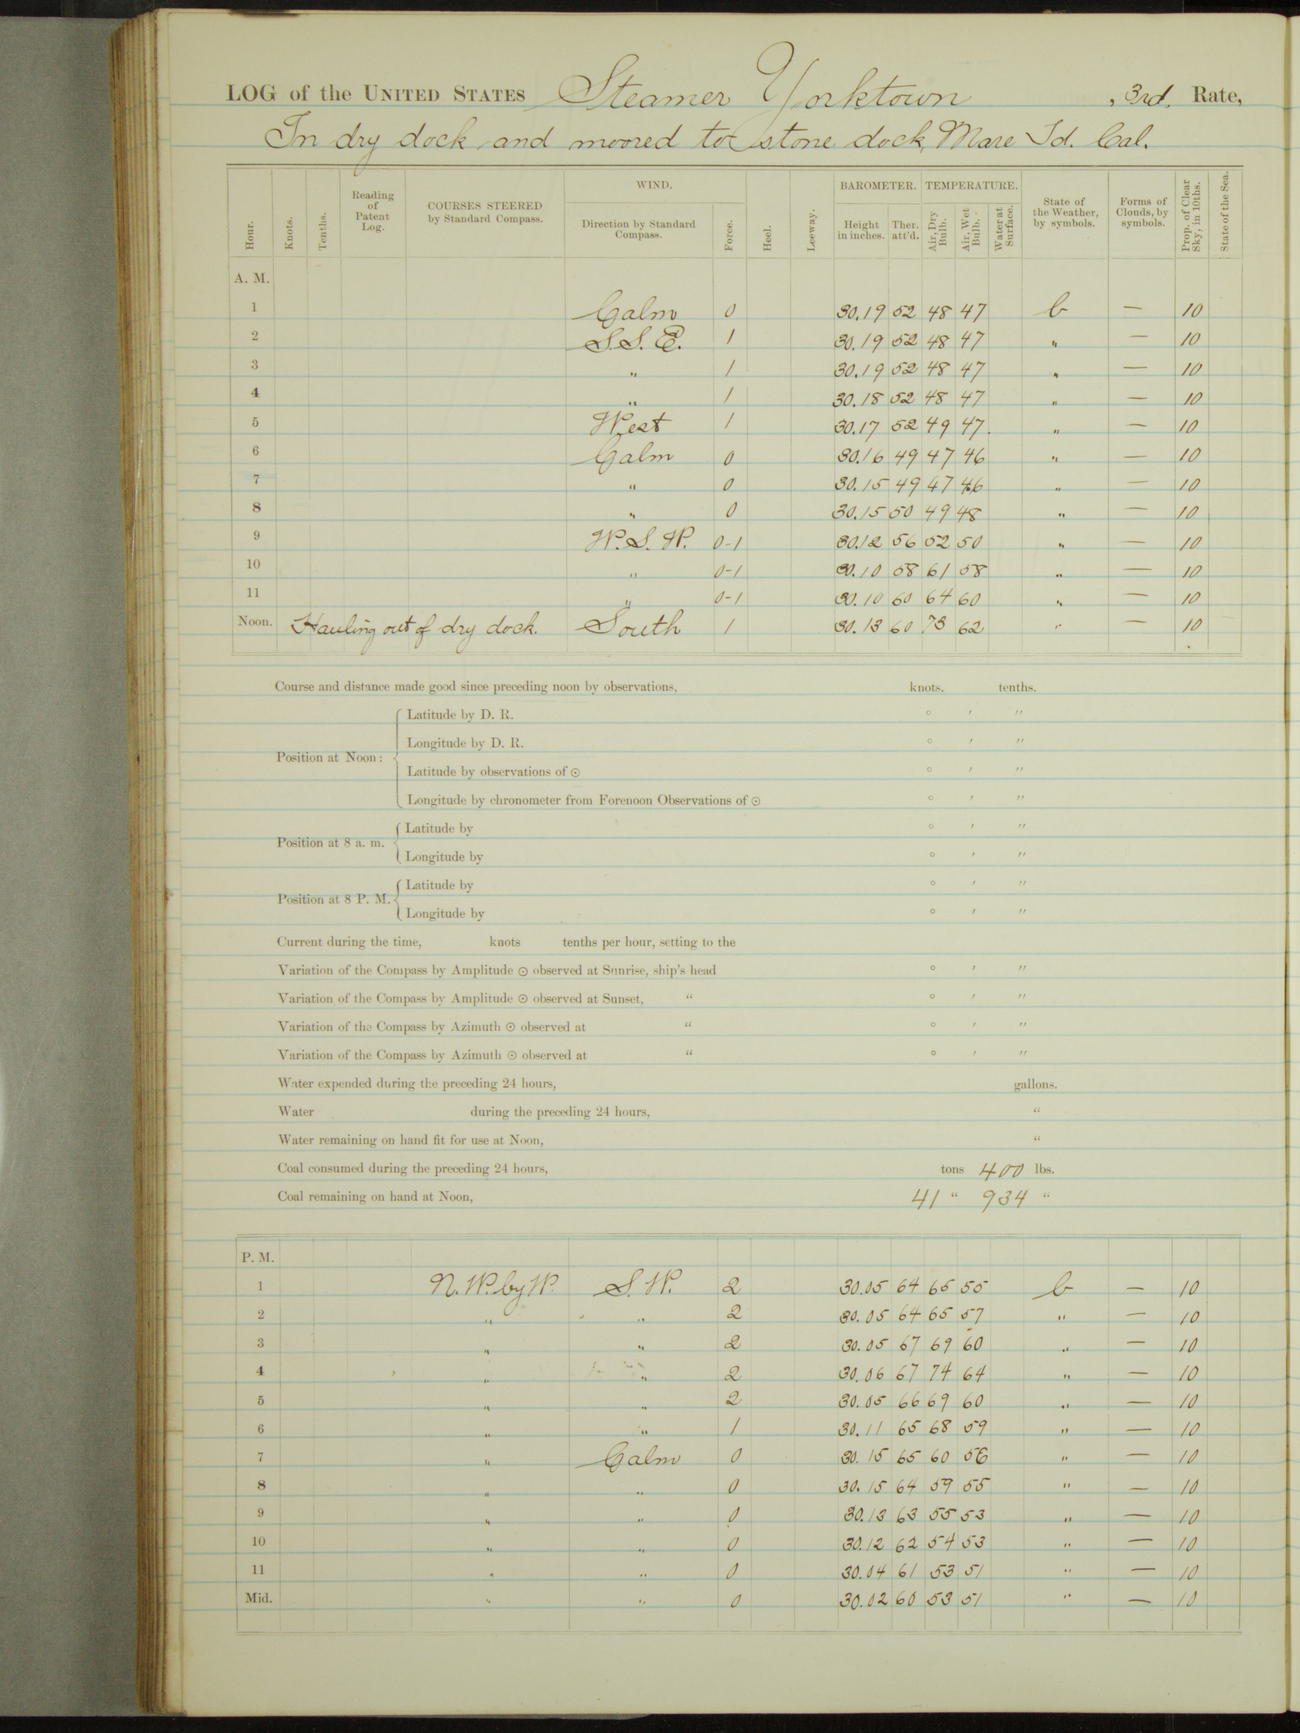 LOG of the UNITED STATES Steamer Yorktown, 3rd. Rate,
In dry dock and moored to stone dock, Mare Id. Cal.
Hour. Knots. Tenths. Reading of Patent Log. COURSES STEERED by Standard Compass. WIND. Direction by Standard Compass. Force. Heel. Leeway. BAROMETER. Height in inches. Ther. att'd. TEMPERATURE. Air, Dry Bulb. Air, Wet Bulb. Water at Surface. State of the Weather, by symbols. Forms of Clouds, by symbols. Prop. of Clear Sky, in 10ths. State of the Sea.
A. M.
1 Calm 0 30.19 52 48 47 b — 10
2 S.S.E. 1 30.19 52 48 47 " — 10
3 " 1 30.19 52 48 47 " — 10
4 " 1 30.18 52 48 47 " — 10
5 West 1 30.17 52 49 47. " — 10
6 Calm 0 30.16 49 47 46 " — 10
7 " 0 30.15 49 47 46 " — 10
8 " 0 30.15 50 49 48 " — 10
9 W.S.W. 0-1 30.12 56 52 50 " — 10
10 " 0-1 30.10 58 61 58 " — 10
11 " 0-1 30.10 60 64 60 " — 10
Noon. Hauling out of dry dock. South 1 30.13 60 73 62 " — 10
Course and distance made good since preceding noon by observations, knots. tenths.
Position at Noon: Latitude by D. R. ° ′ ″
Longitude by D. R. ° ′ ″
Latitude by observations of ⊙ ° ′ ″
Longitude by chronometer from Forenoon Observations of ⊙ ° ′ ″
Position at 8 a. m. Latitude by ° ′ ″
Longitude by ° ′ ″
Position at 8 P. M. Latitude by ° ′ ″
Longitude by ° ′ ″
Current during the time, knots tenths per hour, setting to the
Variation of the Compass by Amplitude ⊙ observed at Sunrise, ship's head ° ′ ″
Variation of the Compass by Amplitude ⊙ observed at Sunset, " ° ′ ″
Variation of the Compass by Azimuth ⊙ observed at " ° ′ ″
Variation of the Compass by Azimuth ⊙ observed at " ° ′ ″
Water expended during the preceding 24 hours, gallons.
Water during the preceding 24 hours, "
Water remaining on hand fit for use at Noon, "
Coal consumed during the preceding 24 hours, tons 400 lbs.
Coal remaining on hand at Noon, 41 " 934 "
P. M.
1 N.W. by W. S.W. 2 30.05 64 65 55 b — 10
2 " " 2 30.05 64 65 57 " — 10
3 " " 2 30.05 67 69 60 " — 10
4 " " 2 30.06 67 74 64 " — 10
5 " " 2 30.05 66 69 60 " — 10
6 " " 1 30.11 65 68 59 " — 10
7 " Calm 0 30.15 65 60 56 " — 10
8 " " 0 30.15 64 59 55 " — 10
9 " " 0 30.13 63 55 53 " — 10
10 " " 0 30.12 62 54 53 " — 10
11 " " 0 30.04 61 53 51 " — 10
Mid. " " 0 30.02 60 53 51 " — 10